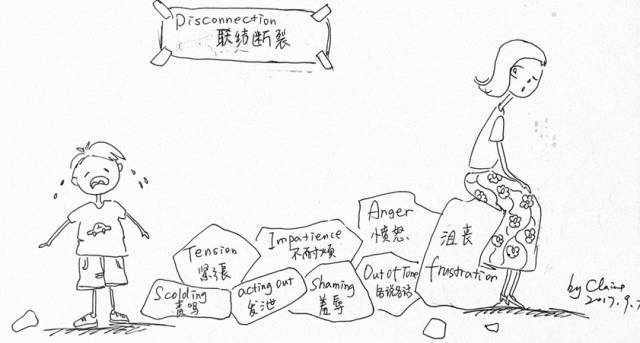 Disconnection
联结断裂
Anger
愤怒
Impatience
不耐烦
Tension
紧張
沮丧
frustration
Out of Tone
各说各话
Shaming
羞辱
acting out
发泄
Scolding
责骂
by Claire
2017.9.7